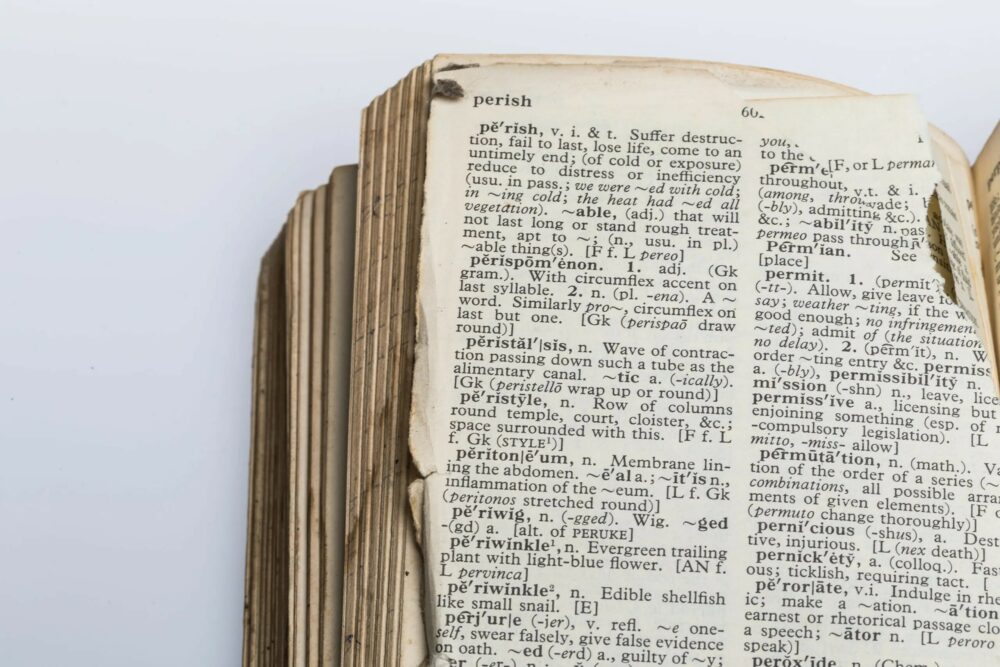 perish
60
pĕ′rish, v. i. & t. Suffer destruc-
tion, fail to last, lose life, come to an
untimely end; (of cold or exposure)
reduce to distress or inefficiency
(usu. in pass.; we were ~ed with cold;
in ~ing cold; the heat had ~ed all
vegetation). ~able, (adj.) that will
not last long or stand rough treat-
ment, apt to ~; (n., usu. in pl.)
~able thing(s). [F f. L pereo]
pĕrispōm′ĕnon. 1. adj. (Gk
gram.). With circumflex accent on
last syllable. 2. n. (pl. -ena). A ~
word. Similarly pro~, circumflex on
last but one. [Gk (perispaō draw
round)]
pĕristăl′|sis, n. Wave of contrac-
tion passing down such a tube as the
alimentary canal. ~tic a. (-ically).
[Gk (peristellō wrap up or round)]
pĕ′ristȳle, n. Row of columns
round temple, court, cloister, &c.;
space surrounded with this. [F f. L
f. Gk (STYLE¹)]
pĕriton|ē′um, n. Membrane lin-
ing the abdomen. ~ē′al a.; ~īt′is n.,
inflammation of the ~eum. [L f. Gk
(peritonos stretched round)]
pĕ′riwĭg, n. (-gged). Wig. ~ged
(-gd) a. [alt. of PERUKE]
pĕ′riwinkle¹, n. Evergreen trailing
plant with light-blue flower. [AN f.
L pervinca]
pĕ′riwinkle², n. Edible shellfish
like small snail. [E]
perj′ur|e (-jer), v. refl. ~e one-
self, swear falsely, give false evidence
on oath. ~ed (-erd) a., guilty of ~y;
you,
to the
[F, or L
throughout, v.t. & i.
(among,
(-bly), admitting &c.).
&c.; ~abil′itȳ n.
permeo pass through
Perm′ian. See
[place]
permit. 1. (permit′
(-tt-). Allow, give leave
say; weather ~ting, if the
good enough; no infringement
~ted); admit of (the situation
no delay). 2. (pĕrm′it), n.
order ~ting entry &c.
a. (-bly), permissibil′itȳ n.
mi′ssion (-shn) n., leave,
permiss′ive a., licensing but
enjoining something (esp. of
-compulsory legislation). [L
mitto, -miss- allow]
permūtā′tion, n. (math.).
tion of the order of a series (~
combinations, all possible
ments of given elements). [F
(permuto change thoroughly)]
perni′cious (-shus), a.
tive, injurious. [L (nex death)]
pernick′ĕtȳ, a. (colloq.).
ous; ticklish, requiring tact. [
pĕ′ror|āte, v.i. Indulge in
ic; make a ~ation. ~ā′tion
earnest or rhetorical passage
a speech; ~ātor n. [L peroro
speak)]
perŏx′ide, n.